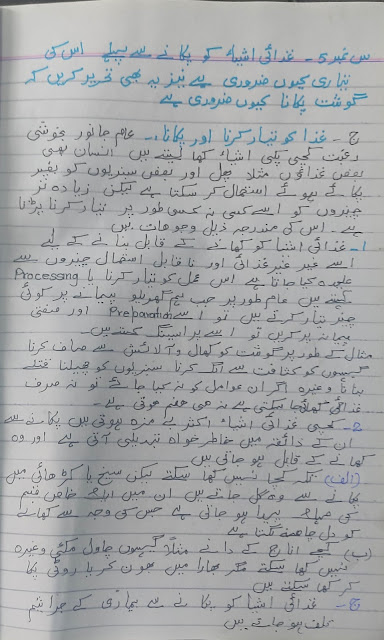 س نمبر 5 - غذائی اشیاء کو پکانے سے پہلے اس کی
تیاری کیوں ضروری ہے نیز یہ بھی تحریر کریں کہ
گوشت پکانا کیوں ضروری ہے
ج - غذا کو تیار کرنا اور پکانا:- عام جانور خوشی
رغبت کچی پکی اشیاء کھا لیتے ہیں انسان بھی
بعض غذاؤں مثلاً پھل اور بعض سبزیوں کو بغیر
پکائے ہوئے استعمال کر سکتا ہے لیکن زیادہ تر
چیزوں کو اسے کسی نہ کسی طور پر تیار کرنا پڑتا
ہے۔ اس کی مندرجہ ذیل وجوہات ہیں
1- غذائی اشیا کو کھانے کے قابل بنانے کے لیے
اسے غیر غذائی اور ناقابل استعمال چیزوں سے
علیحدہ کیا جاتا ہے اس عمل کو تیار کرنا یا Processing
کہتے ہیں عام طور پر جب ہم گھریلو پیمانے پر کوئی
چیز تیار کرتے ہیں تو اسے Preparation اور صنعتی
پیمانہ پر کریں تو اسے پراسیسنگ کہتے ہیں۔
مثال کے طور پر گوشت کو کھال و آلائش سے صاف کرنا
گیہوں کو کثافت سے الگ کرنا سبزیوں کو چھیلنا قتلے
بنانا وغیرہ اگر ان عوامل کو نہ کیا جائے تو نہ صرف
غذائی کھائی جا سکتی ہے نہ ہی ہضم ہوتی ہے۔
2- کچی غذائی اشیاء اکثر بے مزہ ہوتی ہیں پکانے سے
ان کے ذائقہ میں خاطر خواہ تبدیلی آتی ہے اور وہ
کھانے کے قابل ہو جاتی ہیں
(الف) کچا نہیں کھا سکتے لیکن سیخ یا کڑھائی میں
پکانے سے وہ گل جاتے ہیں ان میں ایک خاص قسم
کی مہک پیدا ہو جاتی ہے جس کی وجہ سے کھانے
کو دل چاہنے لگتا ہے
(ب) کچے اناج کے دانے مثلاً گیہوں چاول مکئی وغیرہ
نہیں کھا سکتے مگر میں بھون کر یا روٹی پکا
کر کھا سکتے ہیں
ج - غذائی اشیا کو پکانے سے بیماری کے جراثیم
تلف ہو جاتے ہیں